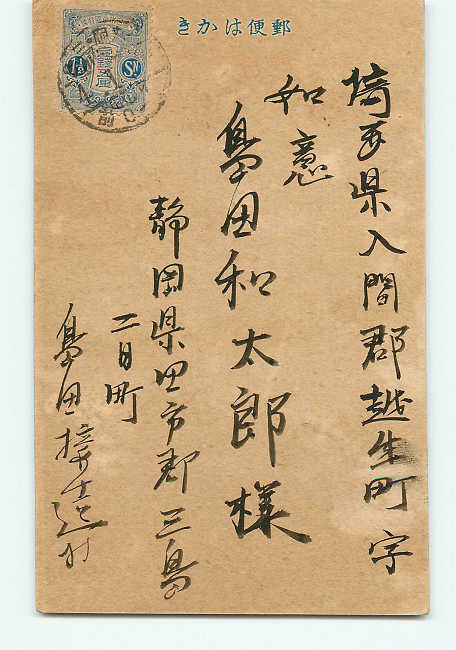 郵便はかき
埼玉県入間郡越生町字
如意
島田和太郎様
静岡県田方郡三島
二日町
島田
1½ Sn
前